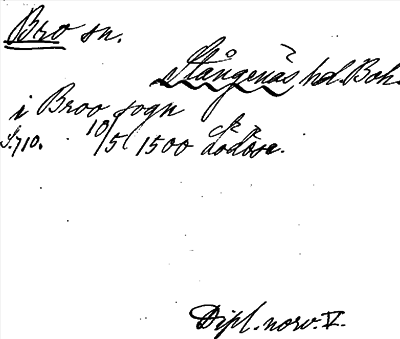 Bro sn.
Stångenäs hd. Boh.
i Broo sogn
S.710. 10/5 1500 Lödöse.
Dipl. norv. V.